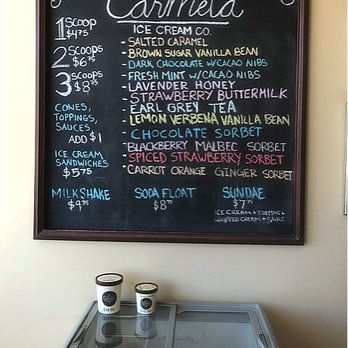 Carmela
ICE CREAM CO.
1 SCOOP
$4.75
2 SCOOPS
$6.75
3 SCOOPS
$8.75
CONES,
TOPPINGS,
SAUCES,
ADD $1
ICE CREAM
SANDWICHES
$5.75
- SALTED CARAMEL
- BROWN SUGAR VANILLA BEAN
- DARK CHOCOLATE W/CACAO NIBS
- FRESH MINT W/CACAO NIBS
- LAVENDER HONEY
- STRAWBERRY BUTTERMILK
- EARL GREY TEA
- LEMON VERBENA VANILLA BEAN
- CHOCOLATE SORBET
- BLACKBERRY MALBEC SORBET
- SPICED STRAWBERRY SORBET
- CARROT ORANGE GINGER SORBET
MILKSHAKE
$9.75
SODA FLOAT
$8.75
SUNDAE
$7.75
ICE CREAM + TOPPING +
WHIPPED CREAM + SAUCE